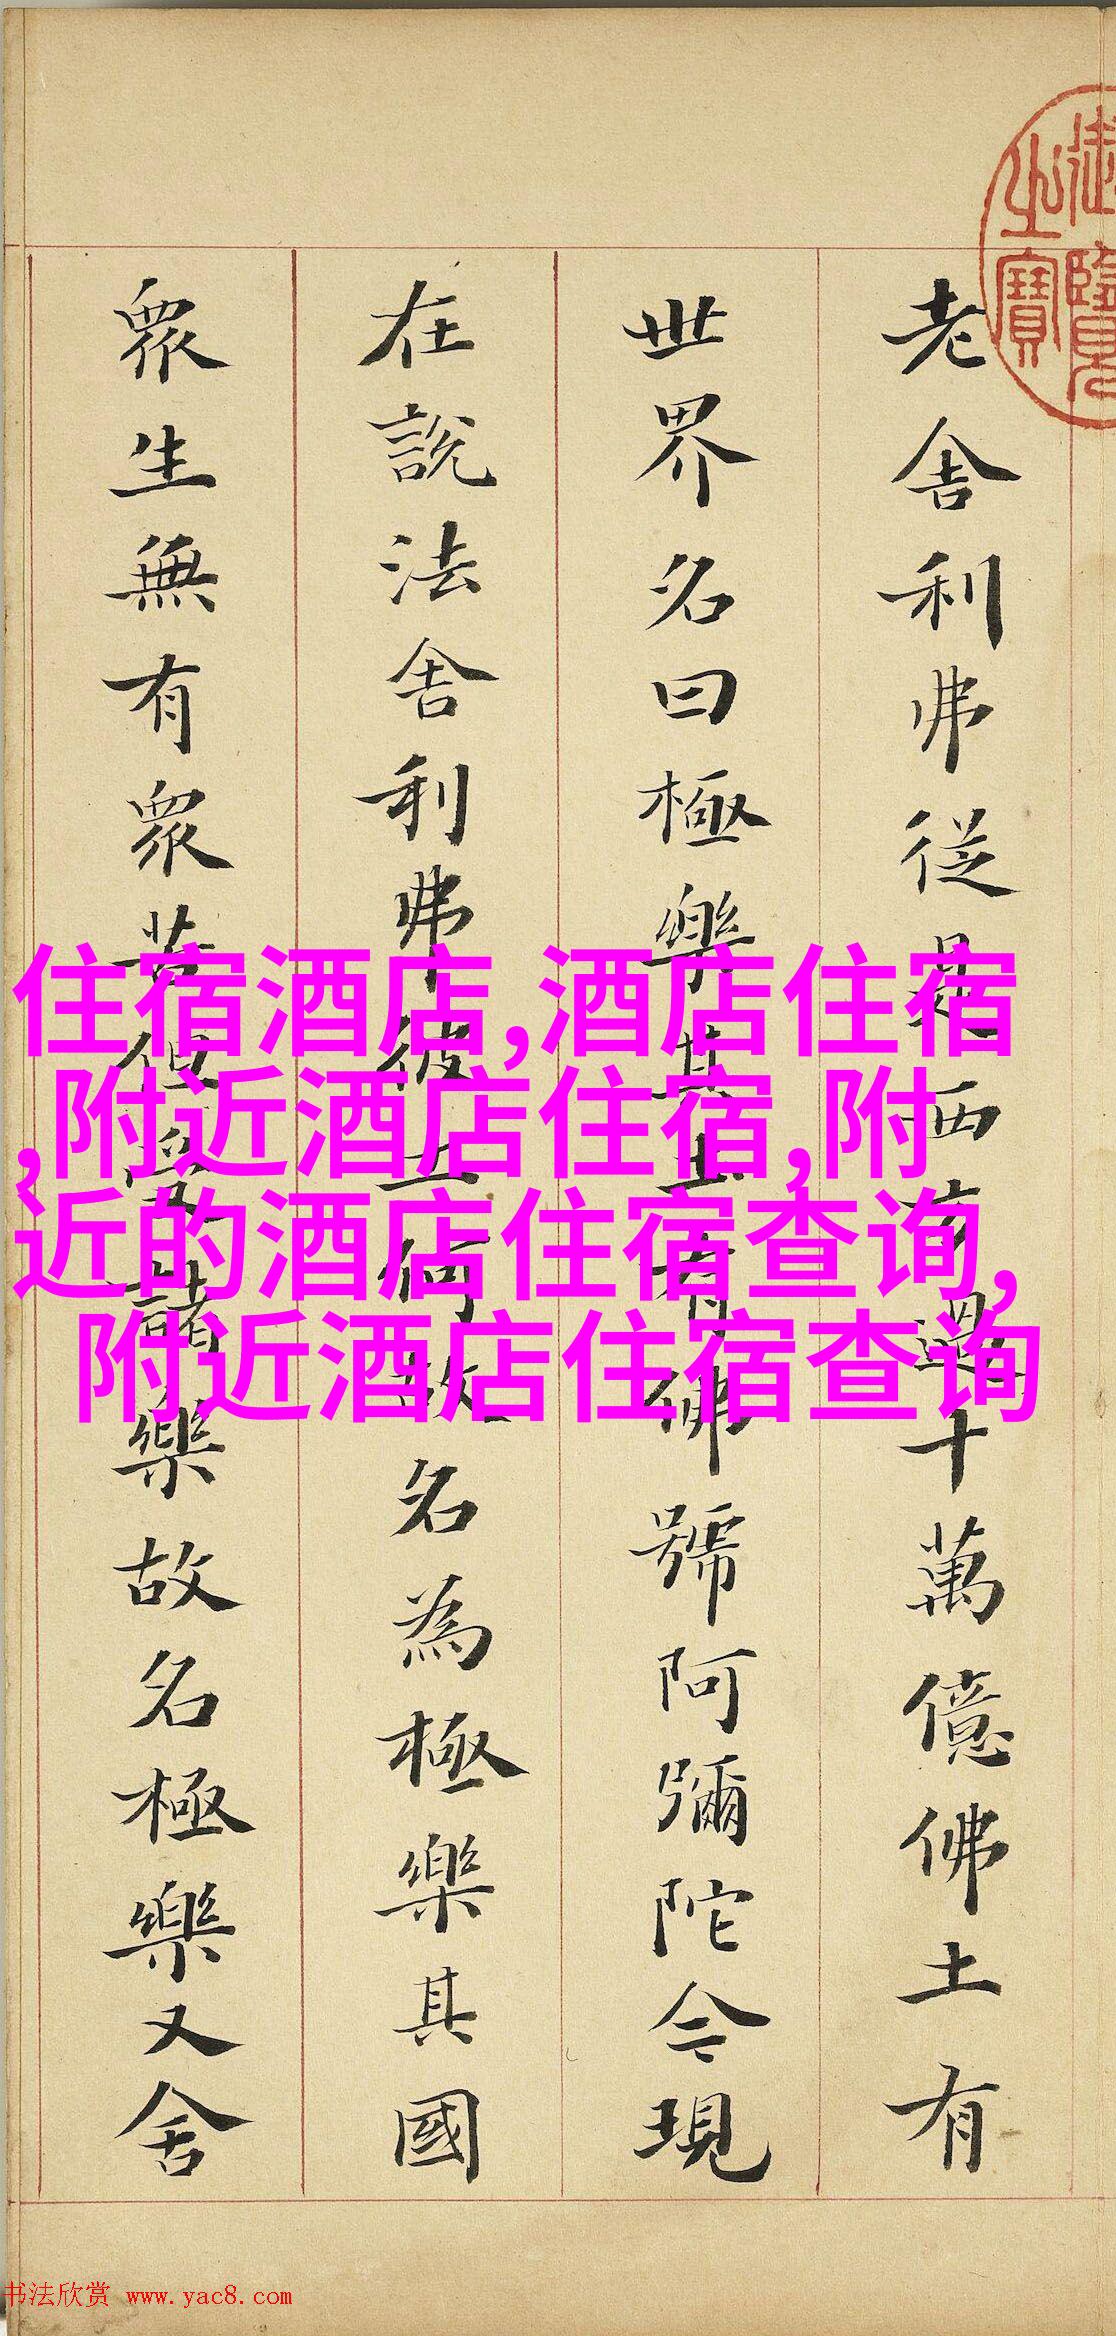 老舍利弗從是西方過十萬億佛土有
世界名曰極樂其土有佛號阿彌陀今現
在說法舍利弗彼土何故名為極樂其國
眾生無有眾苦但受諸樂故名極樂又舍
御覽
之寶
住宿酒店,酒店住宿
,附近酒店住宿,附
近的酒店住宿查询,
附近酒店住宿查询
书法欣赏 www.yac8.com